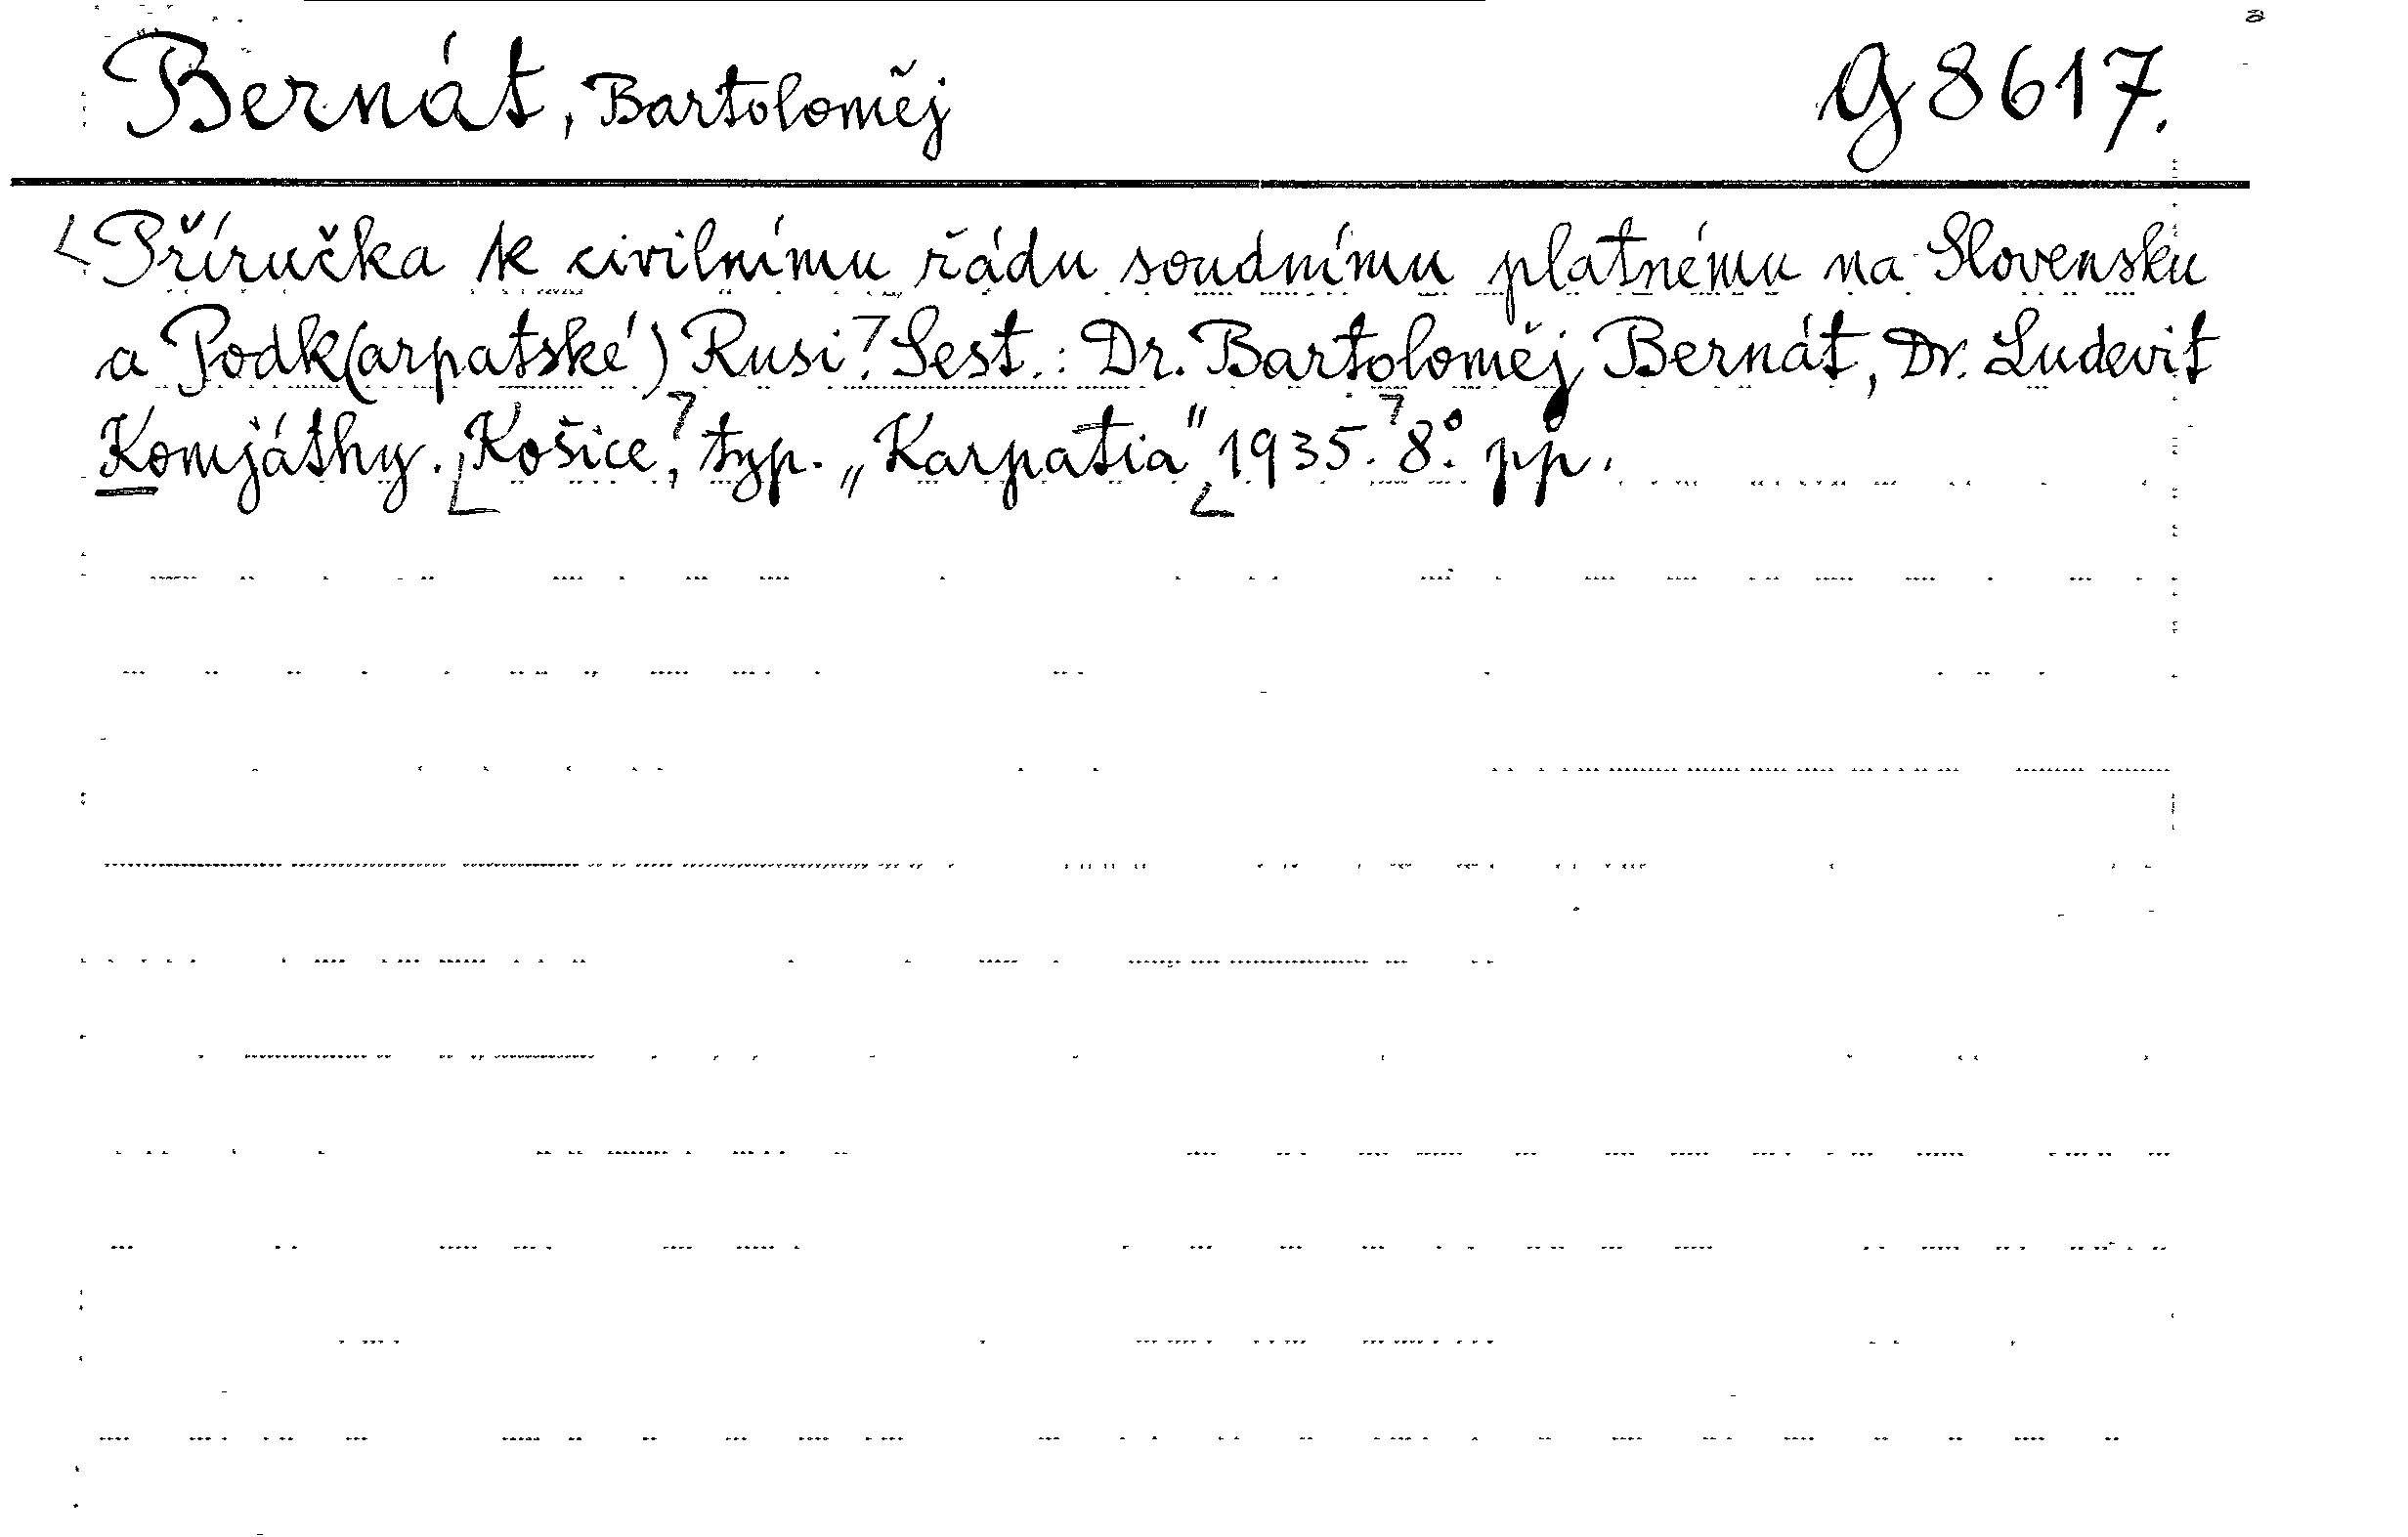 Bernát, Bartoloměj G 8617.
Příručka k civilnímu řádu soudnímu platnému na Slovensku
a Podk(arpatské) Rusi. Sest.: Dr. Bartoloměj Bernát, Dr. Ludevit
Komjáthy. Košice, typ. „Karpatia" 1935. 8° pp.